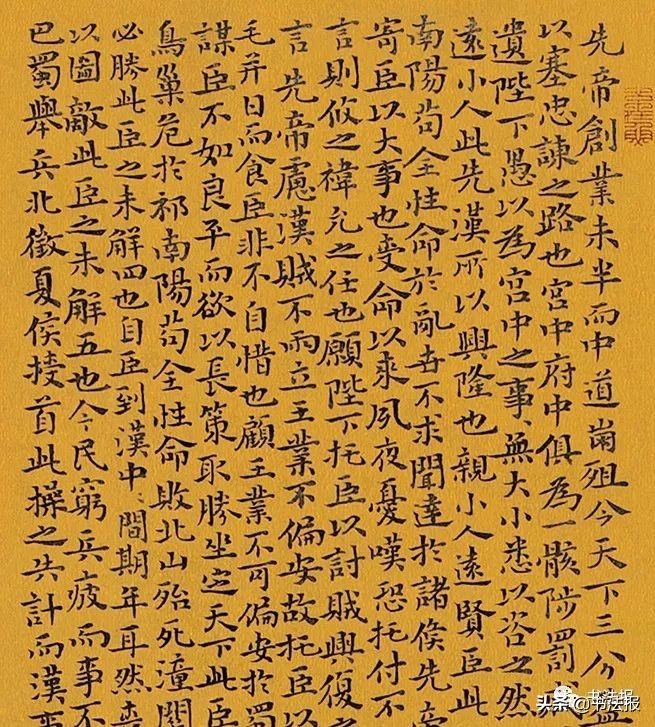 先帝創業未半而中道崩殂今天下三分益
以塞忠諫之路也宮中府中俱為一骸陟罰
遺陛下愚以為宮中之事、無大小悉以咨之然
遠小人此先漢所以興隆也親小人遠賢臣此
南陽苟全性命於亂世不求聞達於諸侯先帝
寄臣以大事也受命以來夙夜憂嘆恐托付不
言則攸之禕允之任也願陛下托臣以討賊興復
言先帝慮漢賊不兩立王業不偏安故托臣以
毛并日而食臣非不自惜也顧王業不可偏安於蜀
謀臣不如良平而欲以長策取勝坐定天下此臣
鳥巢危於祁南陽苟全性命敗北山殆死潼關
必勝此臣之未解四也自臣到漢中、間期年耳然
以圖敵此臣之未解五也今民窮兵疲而事不
巴蜀舉兵北徵夏侯授首此操之失計而漢
书法报
头条@书法报